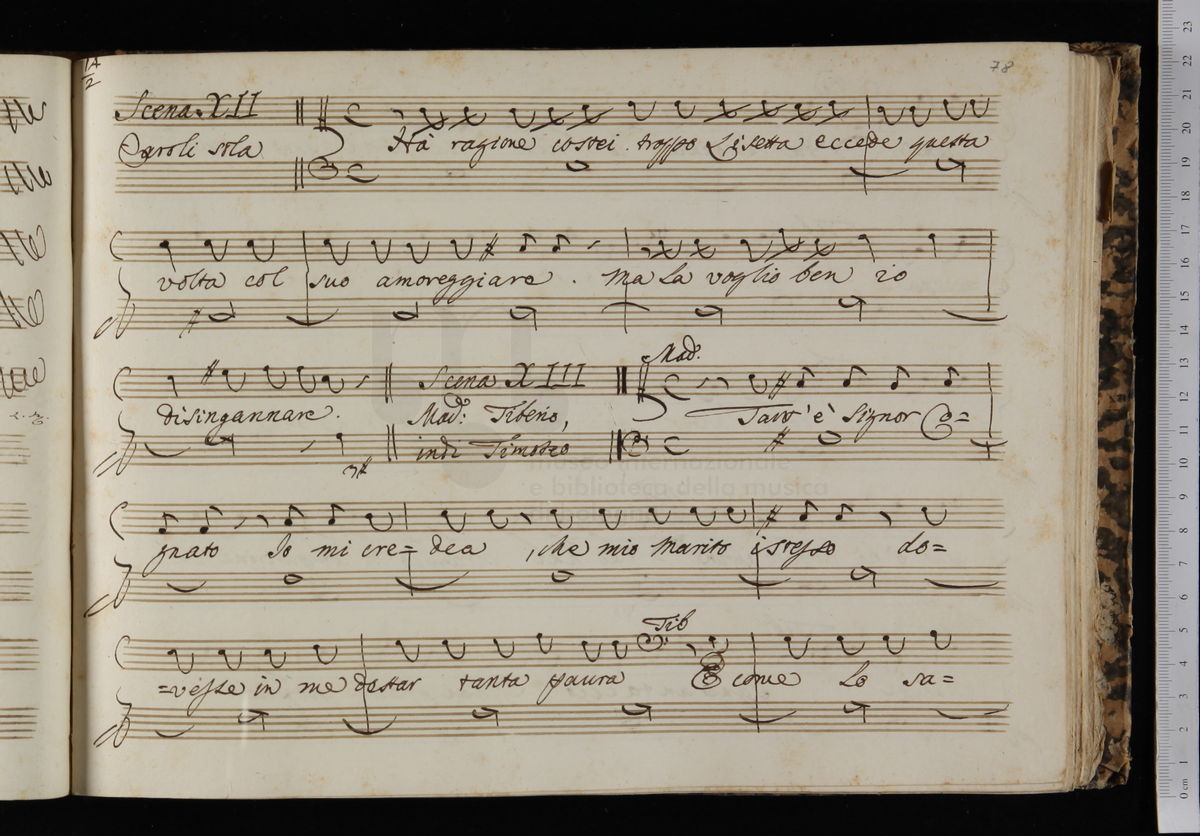 14
2
78
Scena XII
Caroli sola
Hà ragione costei. troppo Lisetta eccede questa
volta col suo amoreggiare. ma la voglio ben io
disingannare.
Scena XIII
Mad.ª Tiberio,
indi Timoteo
Mad.ª
Tant'è Signor Co=
gnato Io mi cre= dea, che mio marito istesso do=
=vesse in me destar tanta paura
Tib
E come Lo sa=
museo internazionale
e biblioteca della musica